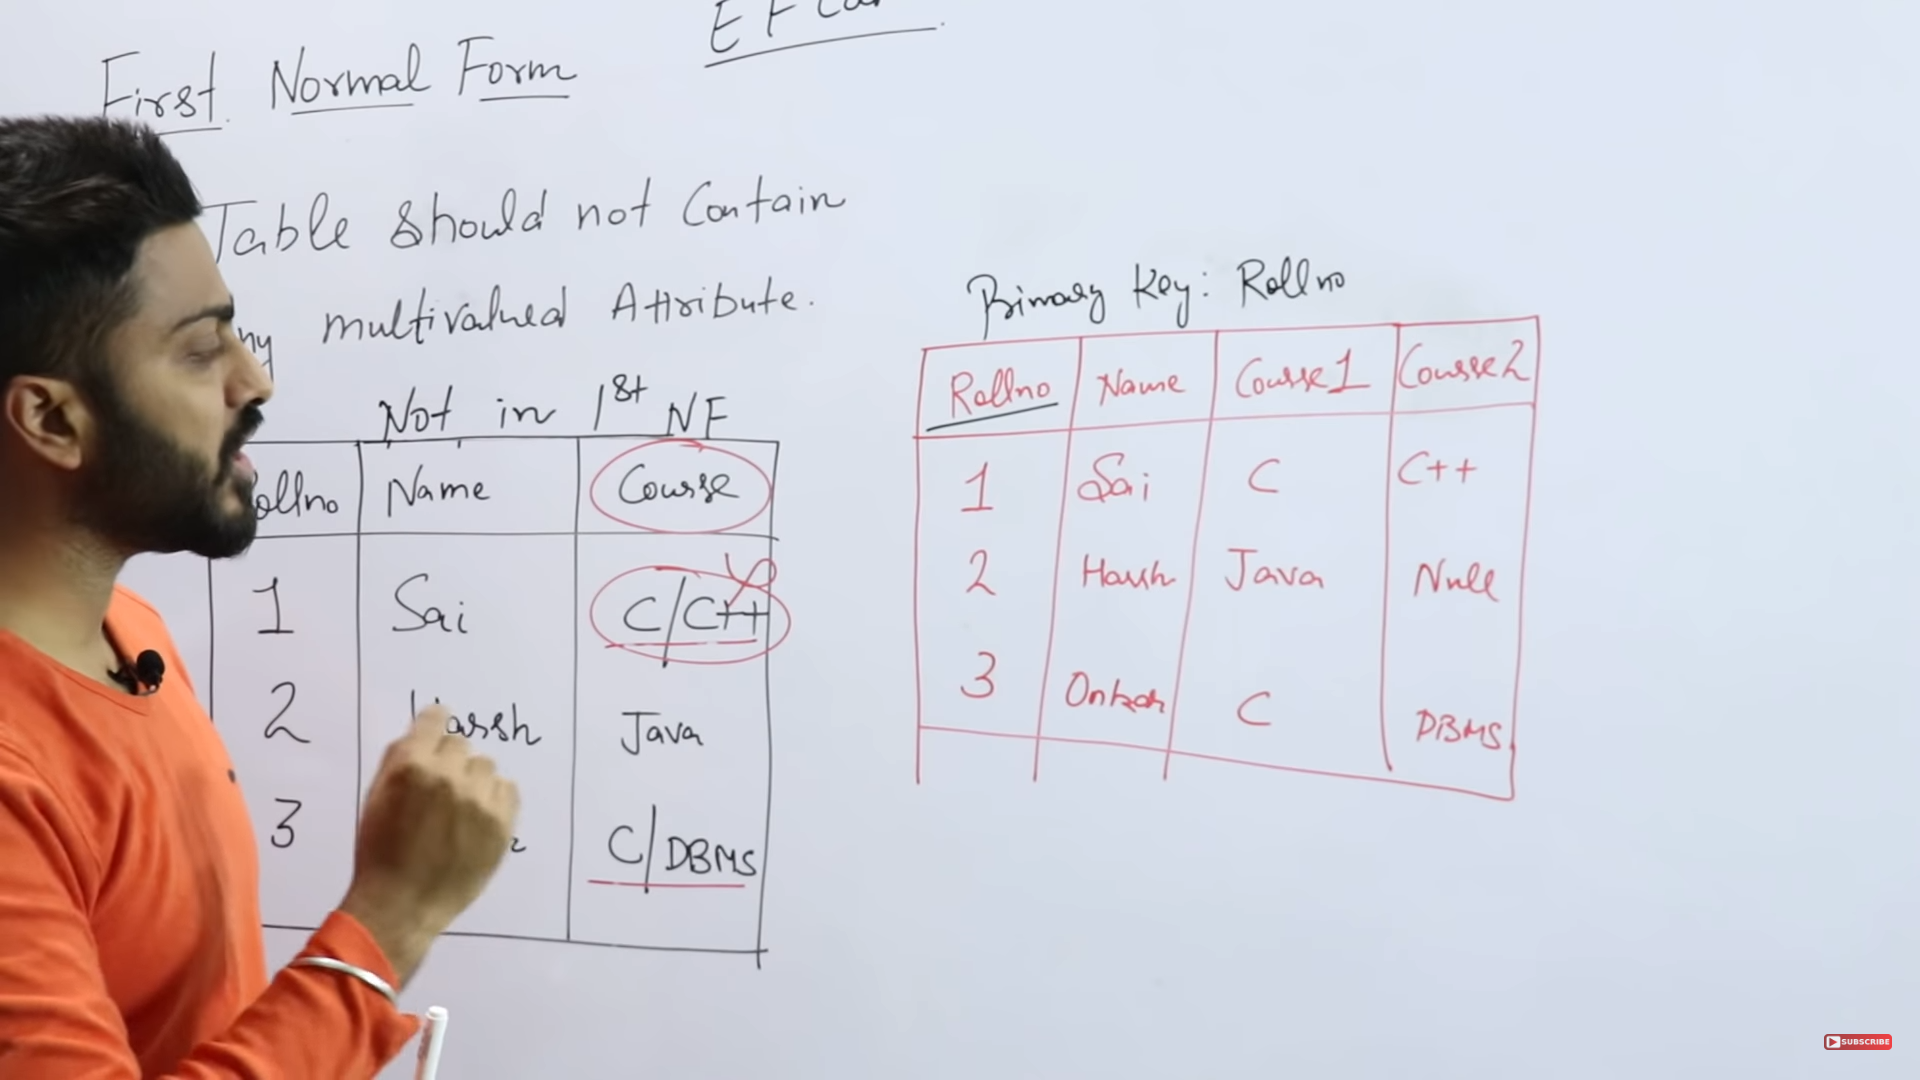 First Normal Form
E F
Table should not Contain
multivalued Attribute.
Not in 1st NF
Rollno Name Course
1 Sai C/C++
2 Harsh Java
3 C/DBMS
Primary Key: Rollno
Rollno Name Course1 Course2
1 Sai C C++
2 Harsh Java Null
3 Onkar C DBMS
SUBSCRIBE